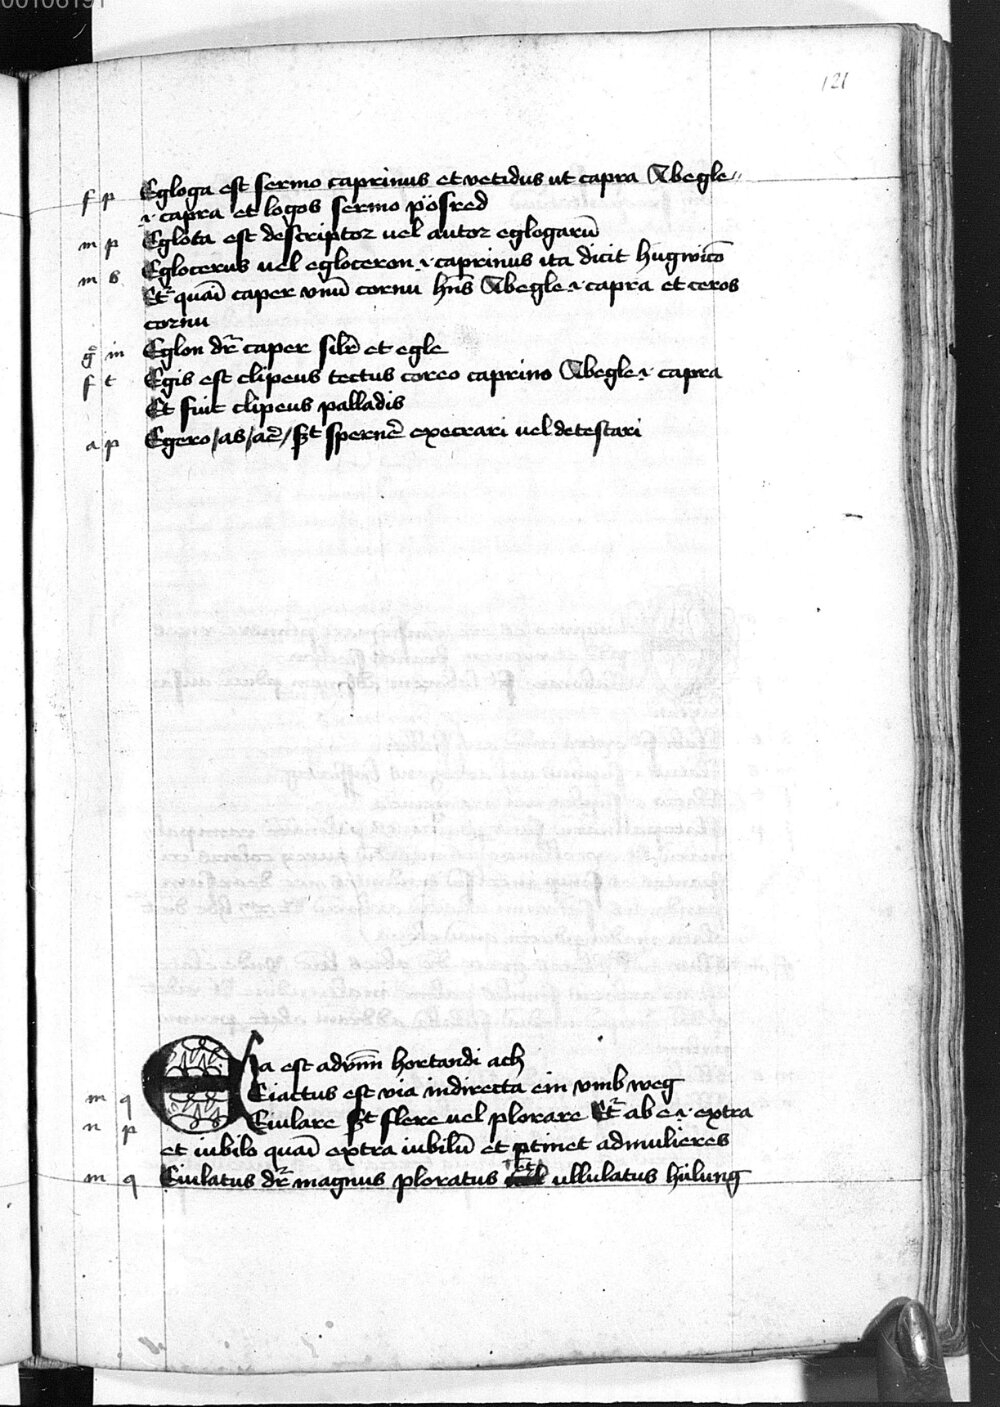 00106191
121
f p Egloga est sermo caprinus et vetidus ut capra Ab egle
.i. capra et logos sermo pösred
m p Eglota est descriptor uel autor eglogarū
m s Eglocerus uel egloceron .i. caprinus ita dicit hugwico
Et quāi caper vnū cornu hn̄s Ab egle .i. capra et ceros
cornu
g in Eglon dr̄ caper silr̄ et egle
f t Egis est clipeus tectus coreo caprino Ab egle .i. capra
Et fuit clipeus palladis
a p Egero /as /ar̄e / s̄t spernē execrari uel detestari
Eya est advm̄ hortandi ach
m q Eiactus est via indirecta ein vmb weg
n p Eiulare s̄t flere uel plorare Et ab e .i. extra
et iubilo quāi extra iubilū et ptinet ad mulieres
m q Eiulatus dr̄ magnus ploratus et ullulatus hülung